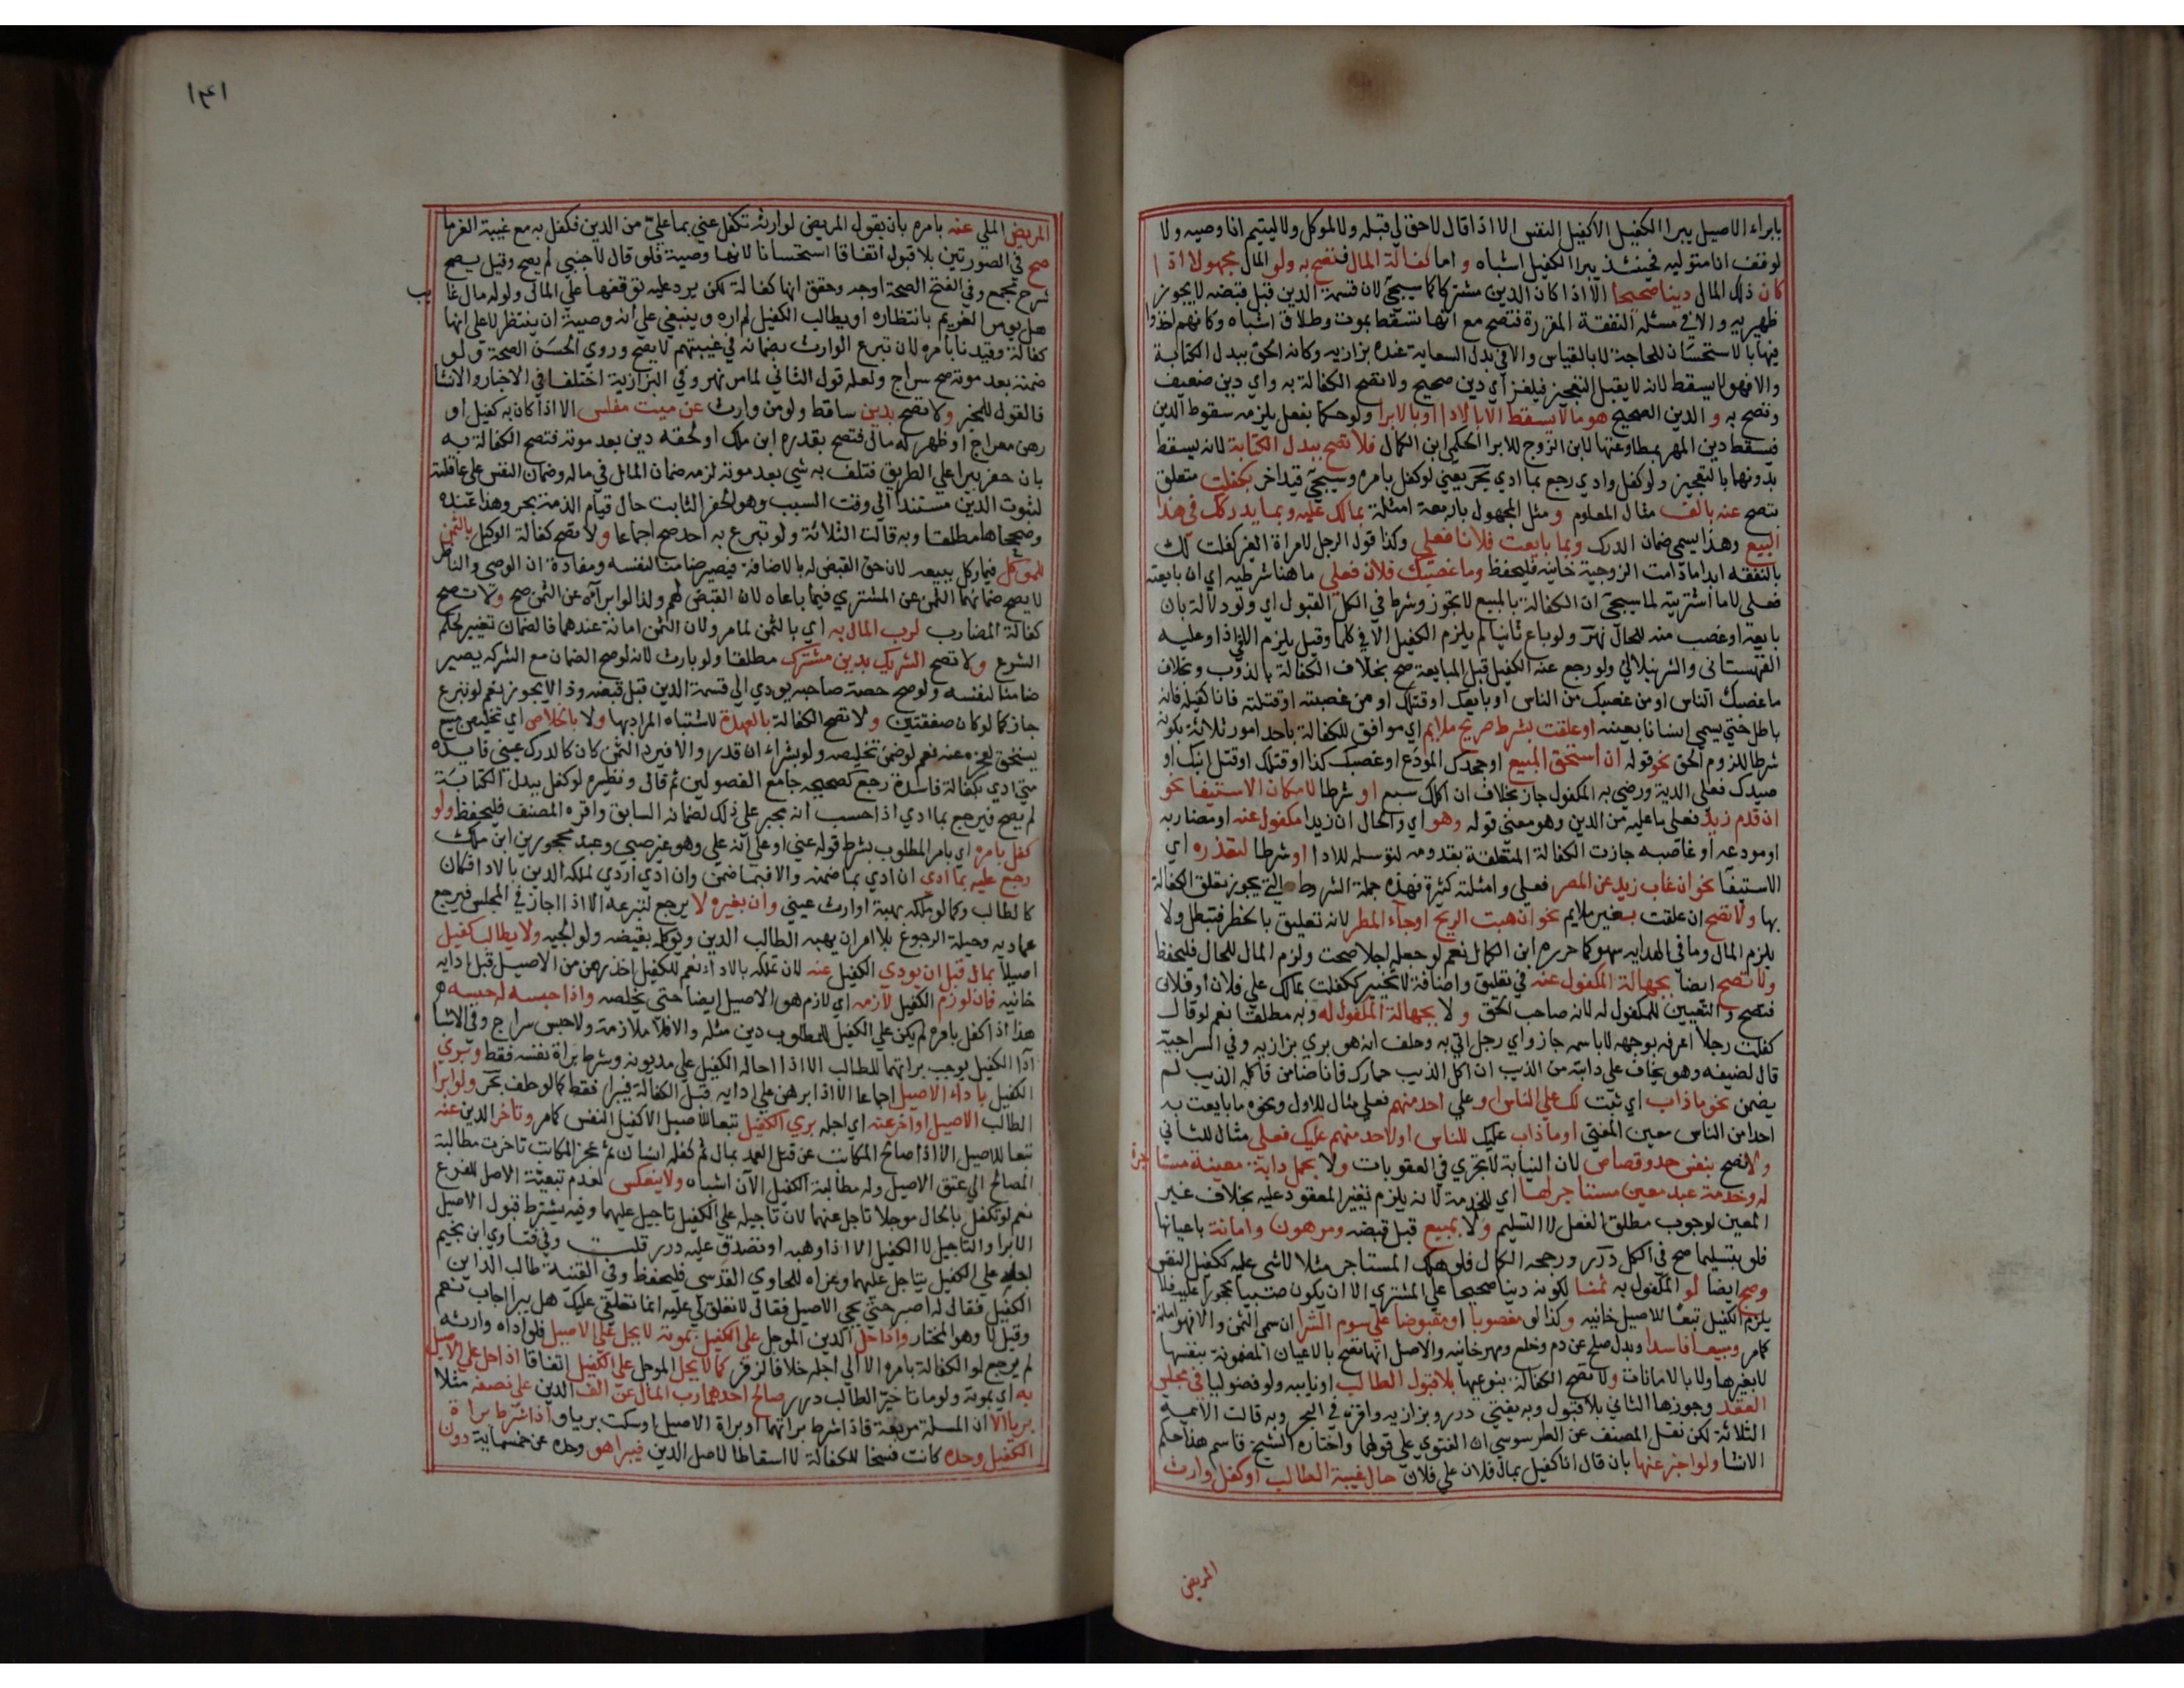 بابراء الاصيل يبرا الكفيل الا كفيل النفس الا اذا قال لا حق لي قبله ولا لموكلي ولا ليتيم انا وصيه ولا
لوقف انا متوليه فحينئذ يبرا الكفيل اشباه و اما كفالة المال فتصح به ولو المال مجهولا اذا
كان ذلك المال دينا صحيحا الا اذا كان الدين مشتركا كما سيجئ لان قسمة الدين قبل قبضه لا يجوز
ظهيريه والا في مسئلة النفقة المقررة فتصح مع انها تسقط بموت وطلاق اشباه وكانهم اخذوا
فيها بالاستحسان للحاجة لا بالقياس والا في بدل السعاية عنده بزازيه وكانه الحق ببدل الكتابة
والا فهو لا يسقط لانه لا يقبل التعجيز فيلغز اي دين صحيح ولا تصح الكفالة به واي دين ضعيف
وتصح به و الدين الصحيح هو ما لا يسقط الا بالادا او بالابرا ولو حكما بفعل يلزمه سقوط الدين
فيسقط دين المهر بمطاوعتها لابن الزوج للابرا الحكمي ابن الكمال فلا تصح ببدل الكتابة لانه يسقط
بدونهما بالتعجيز ولو كفل وادي رجع بما ادي بحر يعني لو كفل بامره وسيجئ قيد اخر بكفلت متعلق
بتصح عنه بالف مثال المعلوم و مثل المجهول باربعة امثلة بمالك عليه وبما يدركك في هذا
البيع وهذا يسمي ضمان الدرك وبما بايعت فلانا فعلي وكذا قول الرجل لامراة الغير كفلت لك
بالنفقه ابدا ما دامت الزوجية خانيه فليحفظ وما غصبك فلان فعلي ما هنا شرطيه اي ان بايعته
فعلي لا ما اشتريته لما سيجئ ان الكفالة بالمبيع لا تجوز وشرط في الكل القبول اي ولو دلالة بان
بايعه او غصب منه للحال نهر ولو باع ثانيا لم يلزم الكفيل الا في كلما وقيل يلزم الا في اذا وعليه
القهستاني والشرنبلالي ولو رجع عنه الكفيل قبل المبايعة صح بخلاف الكفالة بالذوب وبخلاف
ما غصبك الناس او من غصبك من الناس او بايعك او قتلك او من غصبته او قتلته فانا كفيله فانه
باطل حتي يسمي انسانا بعينه او علقت بشرط صريح ملايم اي موافق للكفالة باحد امور ثلاثة بكونه
شرطا للزوم الحق نحو قوله ان استحق المبيع او جحدك المودع او غصبك كذا او قتلك او قتل ابنك او
صيدك فعلي الدية ورضي به المكفول جاز بخلاف ان اكلك سبع او شرطا لامكان الاستيفا نحو
ان قدم زيد فعلي ما عليه من الدين وهو معني قوله وهو اي والحال ان زيدا مكفول عنه او مضاربه
او مودعه او غاصبه جازت الكفالة المتعلقة بقدومه لتوسله للادا او شرطا لتعذره اي
الاستيفا نحو ان غاب زيد عن المصر فعلي وامثلته كثيرة فهذه جملة الشروط التي يجوز تعلق الكفالة
بها ولا تصح ان علقت بغير ملايم نحو ان هبت الريح او جاء المطر لانه تعليق بالخطر فتبطل ولا
يلزم المال وما في الهدايه سهو كما حرره ابن الكمال نعم لو جعله اجلا صحت ولزم المال للحال فليحفظ
ولا تصح ايضا بجهالة المكفول عنه في تعليق واضافة لا تخيير ككفلت بمالك علي فلان او فلان
فتصح والتعيين للمكفول له لانه صاحب الحق و لا بجهالة المكفول له وبه مطلقا نعم لو قال
كفلت رجلا اعرفه بوجهه لا باسمه جاز واي رجل اتي به وحلف انه هو بري بزازيه وفي السراجية
قال لضيفه وهو يخاف علي دابته من الذيب ان اكل الذيب حمارك فانا ضامن فاكله الذيب لم
يضمن نحو ما ذاب اي ثبت لك علي الناس او علي احد منهم فعلي مثال للاول ونحوه ما بايعت به
احدا من الناس معين المفتي او ما ذاب عليك للناس او لاحد منهم عليك فعلي مثال للثاني
ولا تصح بنفس حد وقصاص لان النيابة لا تجري في العقوبات ولا بحمل دابة معينة مستاجرة
له وخدمة عبد معين مستاجر لها اي للخدمة لانه يلزم تغيير المعقود عليه بخلاف غير
المعين لوجوب مطلق الفعل لا التسليم ولا بمبيع قبل قبضه ومرهون وامانة باعيانها
فلو بتسليمها صح في الكل درر ورجحه الكمال فلو هلك المستاجر مثلا لا شي عليه ككفيل النفس
وصح ايضا لو المكفول به ثمنا لكونه دينا صحيحا علي المشتري الا ان يكون صبيا محجورا عليه فلا
يلزم الكفيل تبعا للاصيل خانيه وكذا لو مغصوبا او مقبوضا علي سوم الشرا ان سمي الثمن والا فهو امانة
كما مر ومبيعا فاسدا وبدل صلح عن دم وخلع ومهر خانيه والاصل انها تصح بالاعيان المضمونة بنفسها
لا بغيرها ولا بالامانات ولا تصح الكفالة بنوعيها بلا قبول الطالب او نايبه ولو فضوليا في مجلس
العقد وجوزها الثاني بلا قبول وبه يفتي درر وبزازيه واقره في البحر وبه قالت الائمه
الثلاثة لكن نقل المصنف عن الطرسوسي ان الفتوي علي قولهما واختاره الشيخ قاسم هذا حكم
الانشا ولو اخبر عنها بان قال انا كفيل بمال فلان علي فلان حال غيبة الطالب او كفل وارث
المريض
١٤١
المريض الملي عنه بامره بان يقول المريض لوارثه تكفل عني بما علي من الدين فكفل به مع غيبة الغرما
صح في الصورتين بلا قبول اتفاقا استحسانا لانها وصية فلو قال لاجنبي لم يصح وقيل يصح
شرح مجمع وفي الفتح الصحة اوجه وحقق انها كفالة لكن يرد عليه توقفها علي المال ولو له مال غايب
هل يومر الغريم بانتظاره او يطالب الكفيل لم اره وينبغي علي انه وصية ان ينتظر لا علي انها
كفالة وقيدنا بامره لان تبرع الوارث بضمانه في غيبتهم لا يصح وروي الحسن الصحة ولو
ضمنه بعد موته صح سراج ولعله قول الثاني لما مر نهر وفي البزازية اختلفا في الاخبار والانشا
فالقول للمخبر ولا تصح بدين ساقط ولو من وارث عن ميت مفلس الا اذا كان به كفيل او
رهن معراج او ظهر له مال فتصح بقدره ابن ملك او لحقه دين بعد موته فتصح الكفالة به
بان حفر بيرا علي الطريق فتلف به شي بعد موته لزمه ضمان المال في ماله وضمان النفس علي عاقلته
لثبوت الدين مستندا الي وقت السبب وهو الحفر الثابت حال قيام الذمة بحر وهذا عنده
وصححاها مطلقا وبه قالت الثلاثة ولو تبرع به احد صح اجماعا ولا تصح كفالة الوكيل بالثمن
للموكل فيما وكل ببيعه لان حق القبض له بالاصالة فيصير ضامنا لنفسه ومفاده ان الوصي والناظر
لا يصح ضمانهما الثمن عن المشتري فيما باعاه لان القبض لهم ولذا لو ابراه عن الثمن صح ولا تصح
كفالة المضارب لرب المال به اي بالثمن لما مر ولان الثمن امانة عندهما فالضمان تغيير لحكم
الشرع ولا تصح الشريك بدين مشترك مطلقا ولو بارث لانه لو صح الضمان مع الشركه يصير
ضامنا لنفسه ولو صح حصة صاحبه يودي الي قسمة الدين قبل قبضه وذا لا يجوز نعم لو تبرع
جاز كما لو كان صفقتين ولا تصح الكفالة بالعهدة لاشتباه المراد بها ولا بالخلاص اي تخليص مبيع
يستحق لعجزه عنه نعم لو ضمن تخليصه ولو بشراء ان قدر والا فيرد الثمن كان كالدرك عيني فايده
متي ادي بكفالة فاسدة رجع كصحيحه جامع الفصولين ثم قال ونظيره لو كفل ببدل الكتابة
لم يصح فيرجع بما ادي اذا حسب انه مجبر علي ذلك لضمانه السابق واقره المصنف فليحفظ ولو
كفل بامره اي بامر المطلوب بشرط قوله عني او علي انه علي وهو غير صبي وعبد محجورين ابن ملك
رجع عليه بما ادي ان ادي بما ضمنه والا فبما ضمن وان ادي اردي لملكه الدين بالادا فكان
كالطالب وكما لو ملكه بهبة او ارث عيني وان بغيره لا يرجع لتبرعه الا اذا اجاز في المجلس فيرجع
عماديه وحيلة الرجوع بلا امر ان يهبه الطالب الدين ويوكله بقبضه ولوالجيه ولا يطالب كفيل
اصيلا بمال قبل ان يودي الكفيل عنه لان تملكه بالاداء نعم للكفيل اخذ رهن من الاصيل قبل ادايه
خانيه فان لوزم الكفيل لازمه اي لازم هو الاصيل ايضا حتي يخلصه واذا حبسه له حبسه هو
هذا اذا كفل بامره لم يكن علي الكفيل للمطلوب دين مثله والا فلا ملازمة ولا حبس سراج وفي الاشبا
ادا الكفيل يوجب براتهما للطالب الا اذا احاله الكفيل علي مديونه وشرط براة نفسه فقط وبري
الكفيل باداء الاصيل اجماعا الا اذا برهن علي ادايه قبل الكفالة فيبرا فقط كما لو حلف بحر ولو ابرا
الطالب الاصيل او اخر عنه اي اجله بري الكفيل تبعا للاصيل الا كفيل النفس كما مر وتاخر الدين عنه
تبعا للاصيل الا اذا صالح المكاتب عن قتل العمد بمال ثم كفله انسان ثم عجز المكاتب تاخرت مطالبة
المصالح الي عتق الاصيل وله مطالبة الكفيل الآن اشباه ولا ينعكس لعدم تبعية الاصل للفرع
نعم لو تكفل بالحال موجلا تاجل عنهما لان تاجيله علي الكفيل تاجيل عليهما وفيه يشترط قبول الاصيل
الابرا والتاجيل لا الكفيل الا اذا وهبه او تصدق عليه درر قلت وفي فتاوي ابن نجيم
اجله علي الكفيل يتاجل عليهما وعزاه للحاوي القدسي فليحفظ وفي القنية طالب الداين
الكفيل فقال له اصبر حتي يجي الاصيل فقال لا تعلق لي عليه انما تعلقي عليك هل يبرا اجاب نعم
وقيل لا وهو المختار واذا حل الدين الموجل علي الكفيل بموته لا يحل علي الاصيل فلو اداه وارثه
لم يرجع لو الكفالة بامره الا الي اجله خلافا لزفر كما لا يحل الموجل علي الكفيل اتفاقا اذا حل علي الاصيل
به اي بموته ولو ماتا خير الطالب درر صالح احدهما رب المال عن الف الدين علي نصفه مثلا
بريا الا ان المسلة مربعة فاذا شرط براتهما او براة الاصيل او سكت بريا و اذا شرط براة
الكفيل وحده كانت فسخا للكفالة لا اسقاطا لاصل الدين فيبرا هو وحده عن خمسماية دون